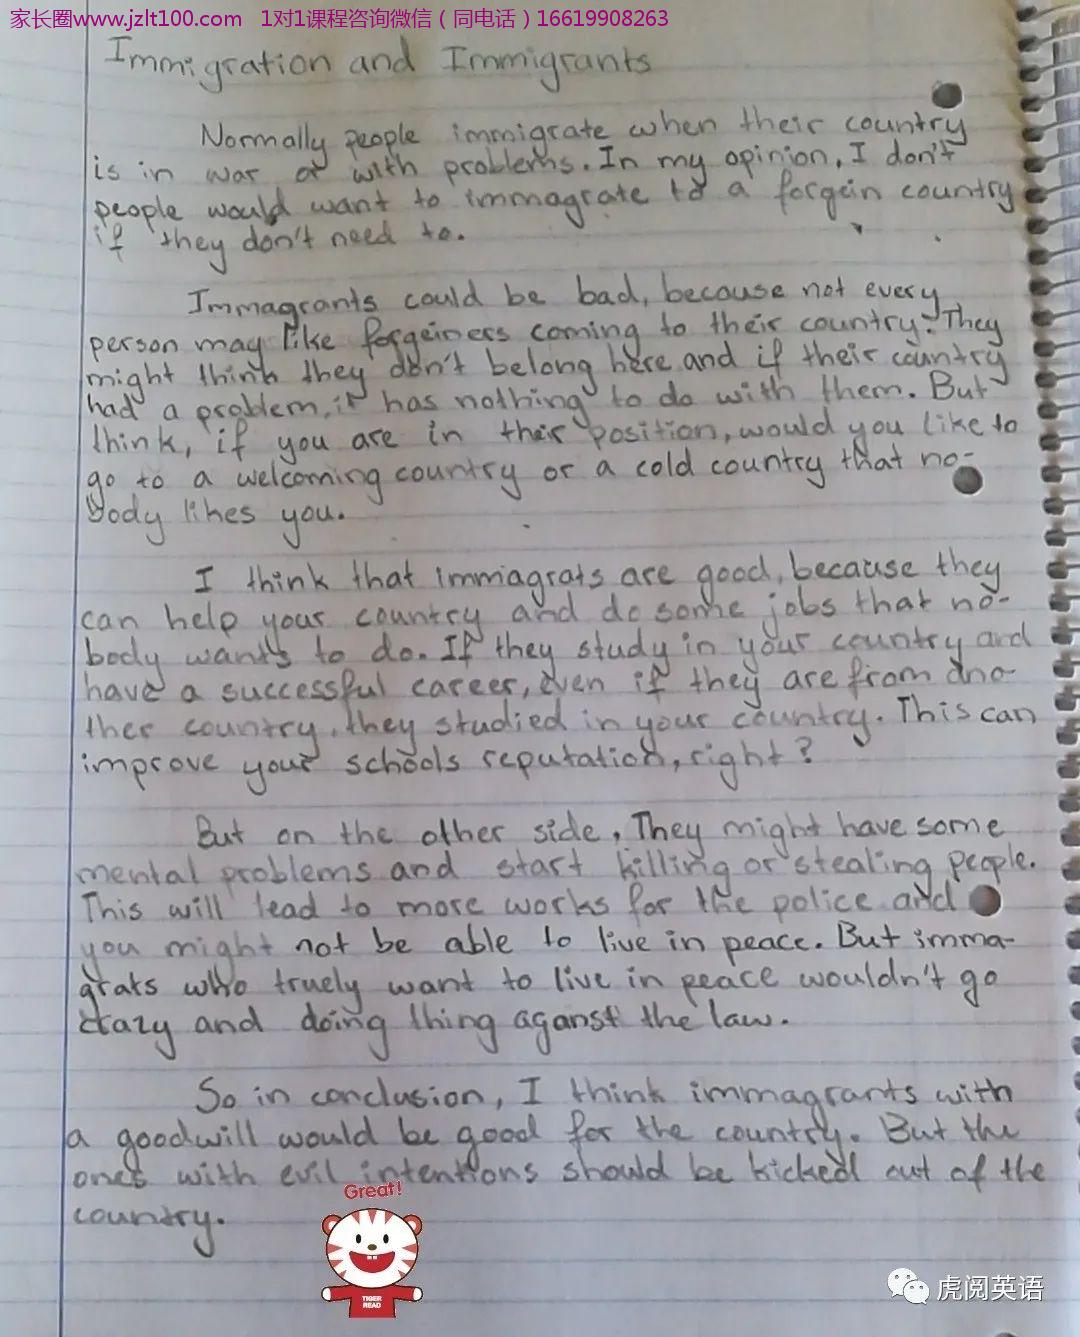 家长圈www.jzlt100.com 1对1课程咨询微信（同电话）16619908263
Immigration and Immigrants
Normally people immigrate when their country
is in war or with problems. In my opinion, I don't
people would want to immagrate to a forgein country
if they don't need to.
Immagrants could be bad, because not every
person may like forgeiners coming to their country. They
might think they don't belong here and if their country
had a problem, it has nothing to do with them. But
think, if you are in their position, would you like to
go to a welcoming country or a cold country that no-
body likes you.
I think that immiagrats are good, because they
can help your country and do some jobs that no-
body wants to do. If they study in your country and
have a successful career, even if they are from ano-
ther country, they studied in your country. This can
improve your schools reputation, right?
But on the other side, They might have some
mental problems and start killing or stealing people.
This will lead to more works for the police and
you might not be able to live in peace. But imma-
grats who truely want to live in peace wouldn't go
crazy and doing thing aganst the law.
So in conclusion, I think immagrants with
a goodwill would be good for the country. But the
ones with evil intentions should be kicked out of the
country.
Great!
TIGER
READ
虎阅英语